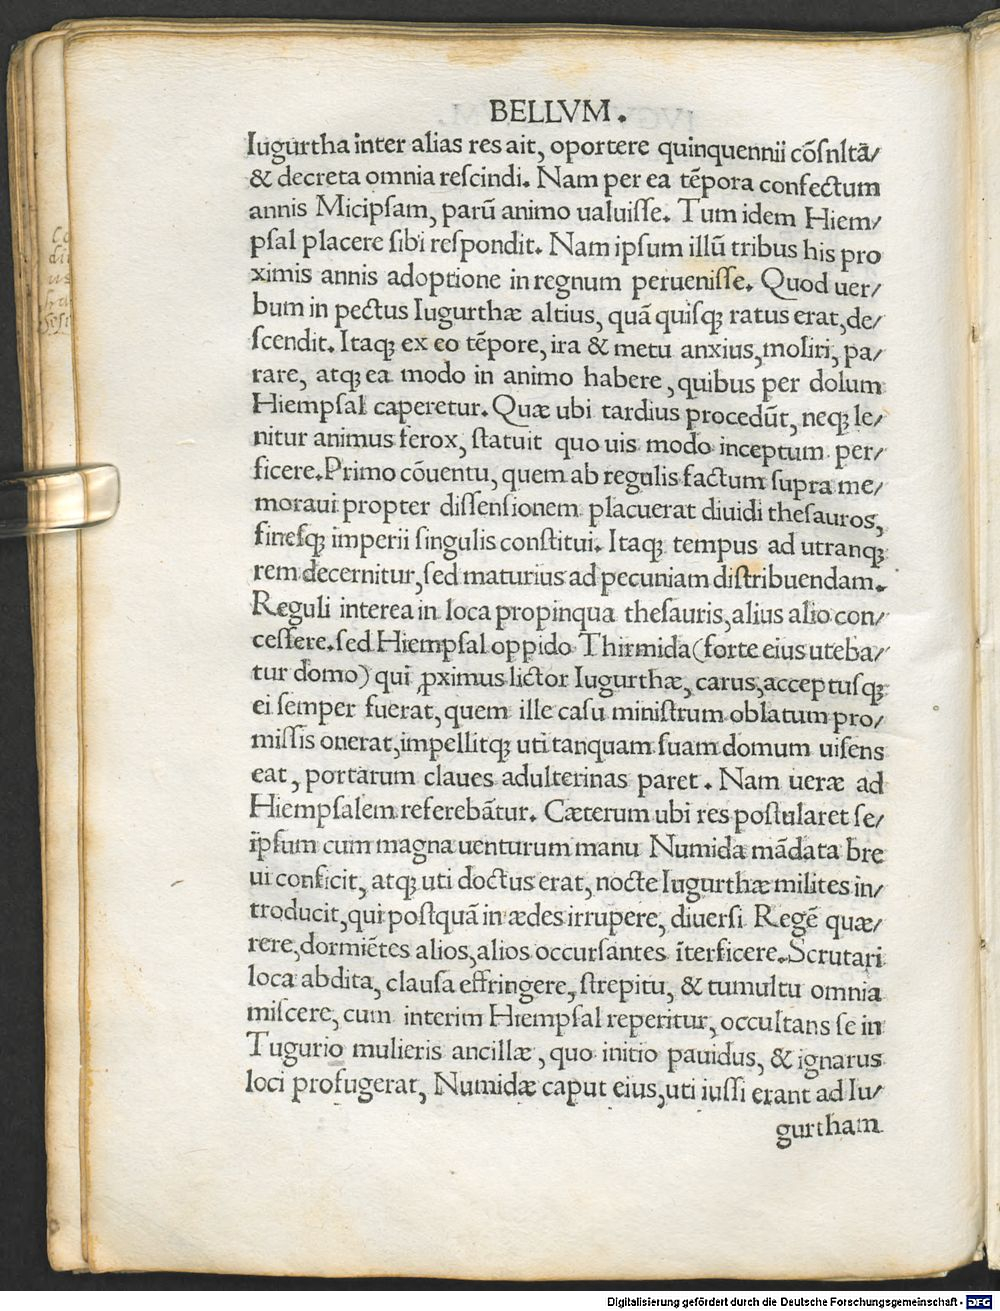 BELLVM.
Iugurtha inter alias res ait, oportere quinquennii cōsnltā/
& decreta omnia reſcindi. Nam per ea tēpora confectum
annis Micipſam, parū animo ualuiſſe. Tum idem Hiem/
pſal placere ſibi reſpondit. Nam ipſum illū tribus his pro
ximis annis adoptione in regnum perueniſſe. Quod uer/
bum in pectus Iugurthæ altius, quā quiſqꝫ ratus erat, de/
ſcendit. Itaqꝫ ex eo tēpore, ira & metu anxius, moliri, pa/
rare, atqꝫ ea modo in animo habere, quibus per dolum
Hiempſal caperetur. Quæ ubi tardius procedūt, neqꝫ le/
nitur animus ferox, ſtatuit quo uis modo inceptum per/
ficere. Primo cōuentu, quem ab regulis factum ſupra me/
moraui propter diſſenſionem placuerat diuidi theſauros,
fineſqꝫ imperii ſingulis conſtitui. Itaqꝫ tempus ad utranqꝫ
rem decernitur, ſed maturius ad pecuniam diſtribuendam.
Reguli interea in loca propinqua theſauris, alius alio con/
ceſſere. ſed Hiempſal oppido Thirmida (forte eius uteba/
tur domo) qui ꝓximus lictor Iugurthæ, carus, acceptuſqꝫ
ei ſemper fuerat, quem ille caſu miniſtrum oblatum pro/
miſſis onerat, impellitqꝫ uti tanquam ſuam domum uiſens
eat, portarum claues adulterinas paret. Nam ueræ ad
Hiempſalem referebātur. Cæterum ubi res poſtularet ſe/
ipſum cum magna uenturum manu Numida mādata bre
ui conficit, atqꝫ uti doctus erat, nocte Iugurthæ milites in/
troducit, qui poſtquā in ædes irrupere, diuerſi Regē quæ/
rere, dormiētes alios, alios occurſantes īterficere. Scrutari
loca abdita, clauſa effringere, ſtrepitu, & tumultu omnia
miſcere, cum interim Hiempſal reperitur, occultans ſe in
Tugurio mulieris ancillæ, quo initio pauidus, & ignarus
loci profugerat, Numidæ caput eius, uti iuſſi erant ad Iu/
gurtham
Digitalisierung gefördert durch die Deutsche Forschungsgemeinschaft - DFG